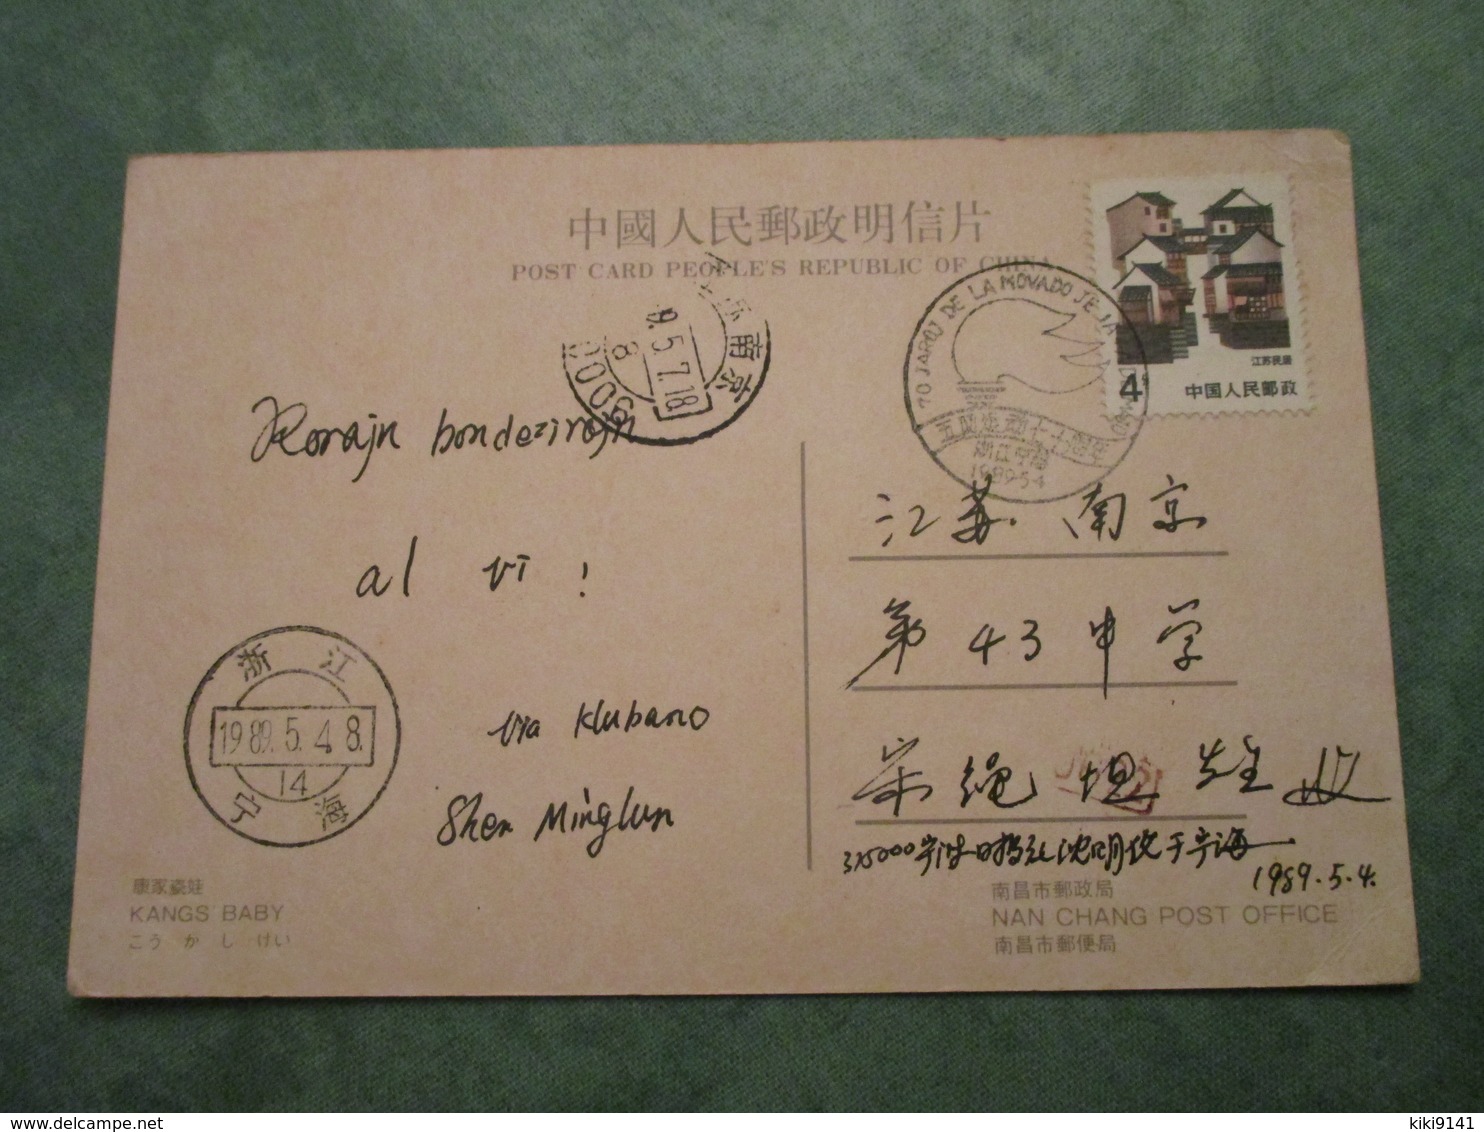 中國人民郵政明信片
POST CARD PEOPLE'S REPUBLIC OF CHINA
江苏民居
4
中国人民邮政
70 JAROJ DE LA MOVADO JE
五四运动七十周年
浙江宁海
1989.5.4
南京
9.5.7.18
8
Korajn bondezirojn
al vi !
via klubano
Shen Minglun
浙江
1989.5.4.8.
14
宁海
江苏. 南京
第43中学
宋绳坦 先生 收
315000 宁波日报社 沈明伦于宁海
1989.5.4.
康家豪娃
KANGS BABY
こうかしけい
南昌市郵政局
NAN CHANG POST OFFICE
南昌市郵便局
kiki9141